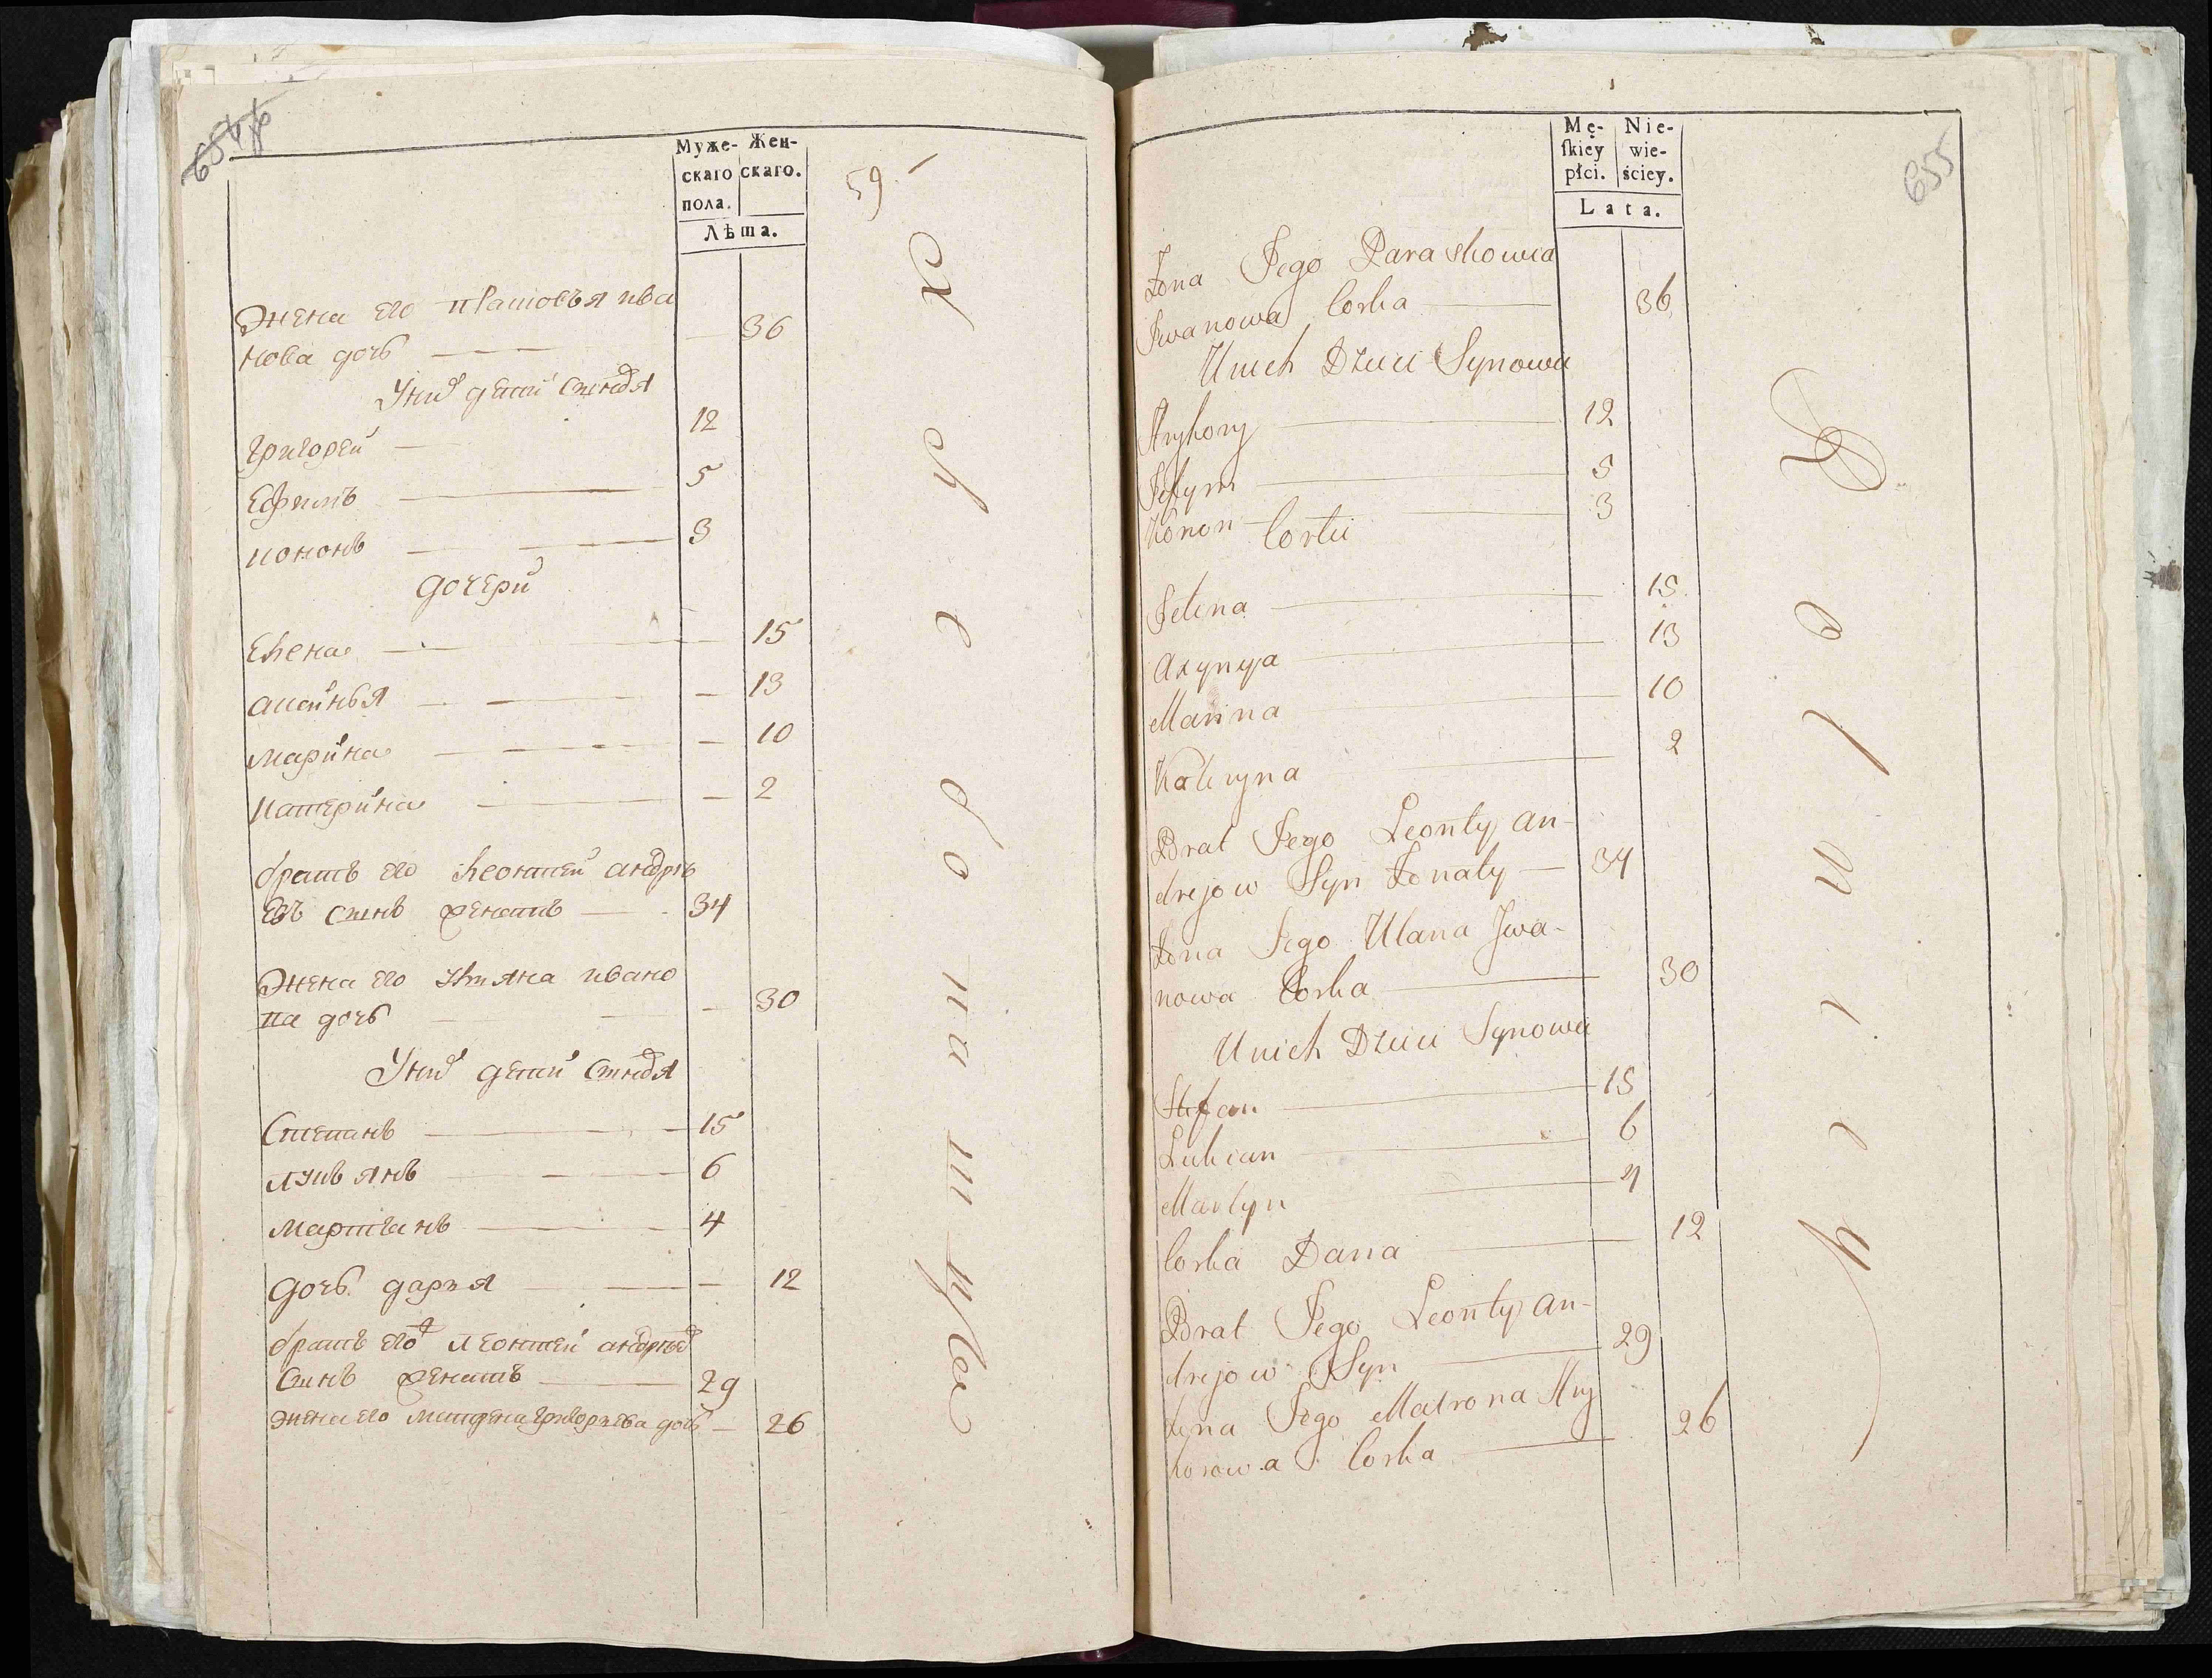 654 об
Муже- Жен-
скаго скаго.
пола.
Лѣта.
59
Жена его прасковья ива 36
нова дочь
У них дети сыновья
Григорей 12
Ефимъ 5
Кононъ 3
дочери
Елена 15
аксинья 13
марина 10
катерина 2
братъ его леонтей андре
евъ сынъ женатъ 34
Жена его ульяна ивано
ва дочь 30
У них дети сыновья
Степанъ 15
лукьянъ 6
мартинъ 4
дочь дарья 12
братъ его леонтей андреев
сынъ женатъ 29
жена его матрена григорьева дочь 26
655
Mę- Nie-
skiey wie-
płci. ściey.
Lata.
Żona Jego Paraskowia
Jwanowa Corka 36
Unich Dzieci Synowie
Hryhory 12
Jefym 5
Konon 3
Corki
Jelena 15
Axynya 13
Marina 10
Kateryna 2
Brat Jego Leonty An-
drejow Syn Żonaty 34
Żona Jego Ulana Jwa-
nowa Corka 30
Unich Dzieci Synowie
Stefan 15
Lukian 6
Martyn 4
Corka Daria 12
Brat Jego Leonty An-
drejow Syn 29
Żona Jego Matrona Hry
horowa Corka 26